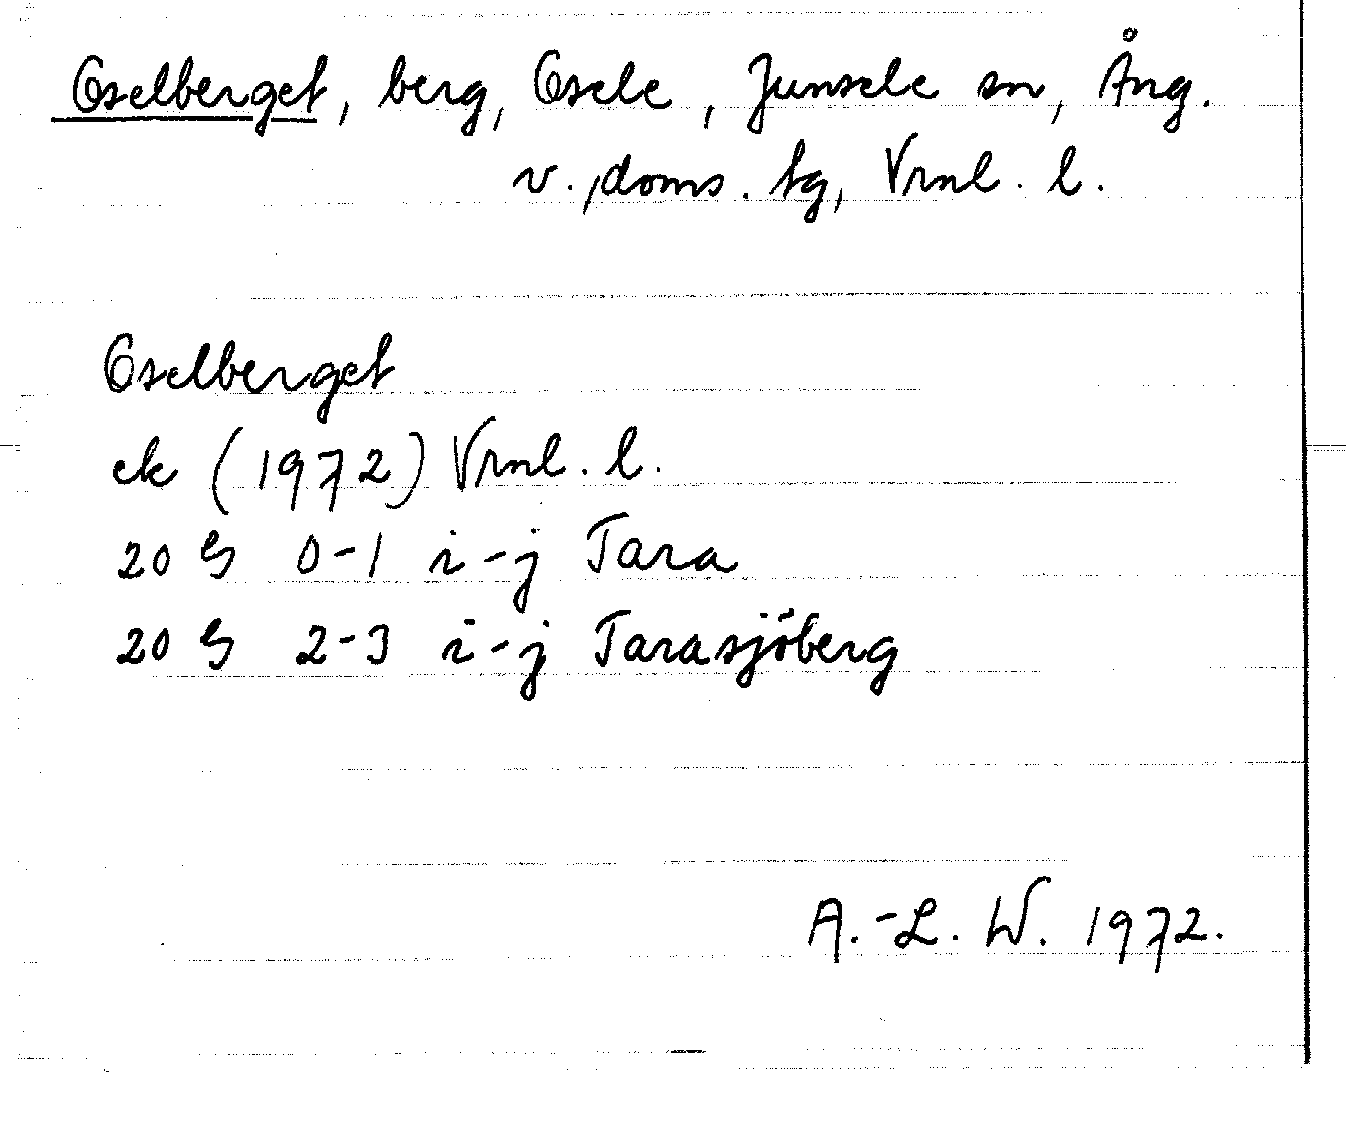 Oselberget, berg, Osele, Junsele sn, Ång.
v., doms. tg, Vrnl. l.
Oselberget
ek (1972) Vrnl. l.
20 G 0-1 i-j Tara
20 G 2-3 i-j Tarasjöberg
A.-L. W. 1972.